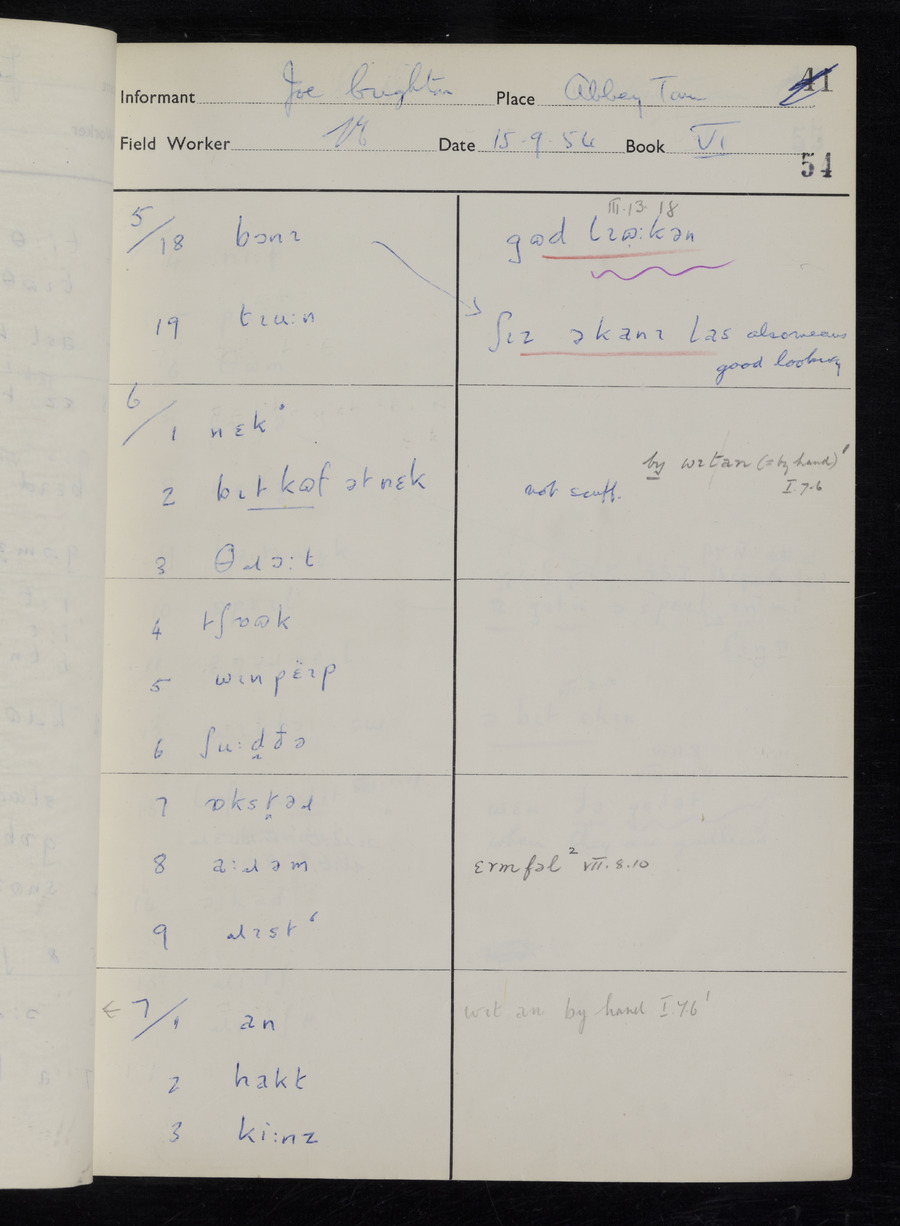 Informant Joe Brighton Place Abbey Town 41
Field Worker Date 15.9.54 Book VI
54
5/18 bɔnɪ
III.13.18
gɷd lɪɷ:kən
19 tɪu:n
ʃɪz əkanɪ las also means
good looking
6/1 nɛk'
by wɪtan (= by hand)'
I.7.6
2 bɪt kɷf ət nɛk
not scuff.
3 θɹɔ:t
4 tʃɒɷk
5 wɪnpëɪp
6 ʃu:d̪ðə
7 ɒkst̪əɹ
8 a:ɹəm
ɛɪmfəl² VII.8.10
9 ɹɪst⁶
← 7/1 an
wɪt an by hand I.7.6'
2 hakt
3 ki:nz